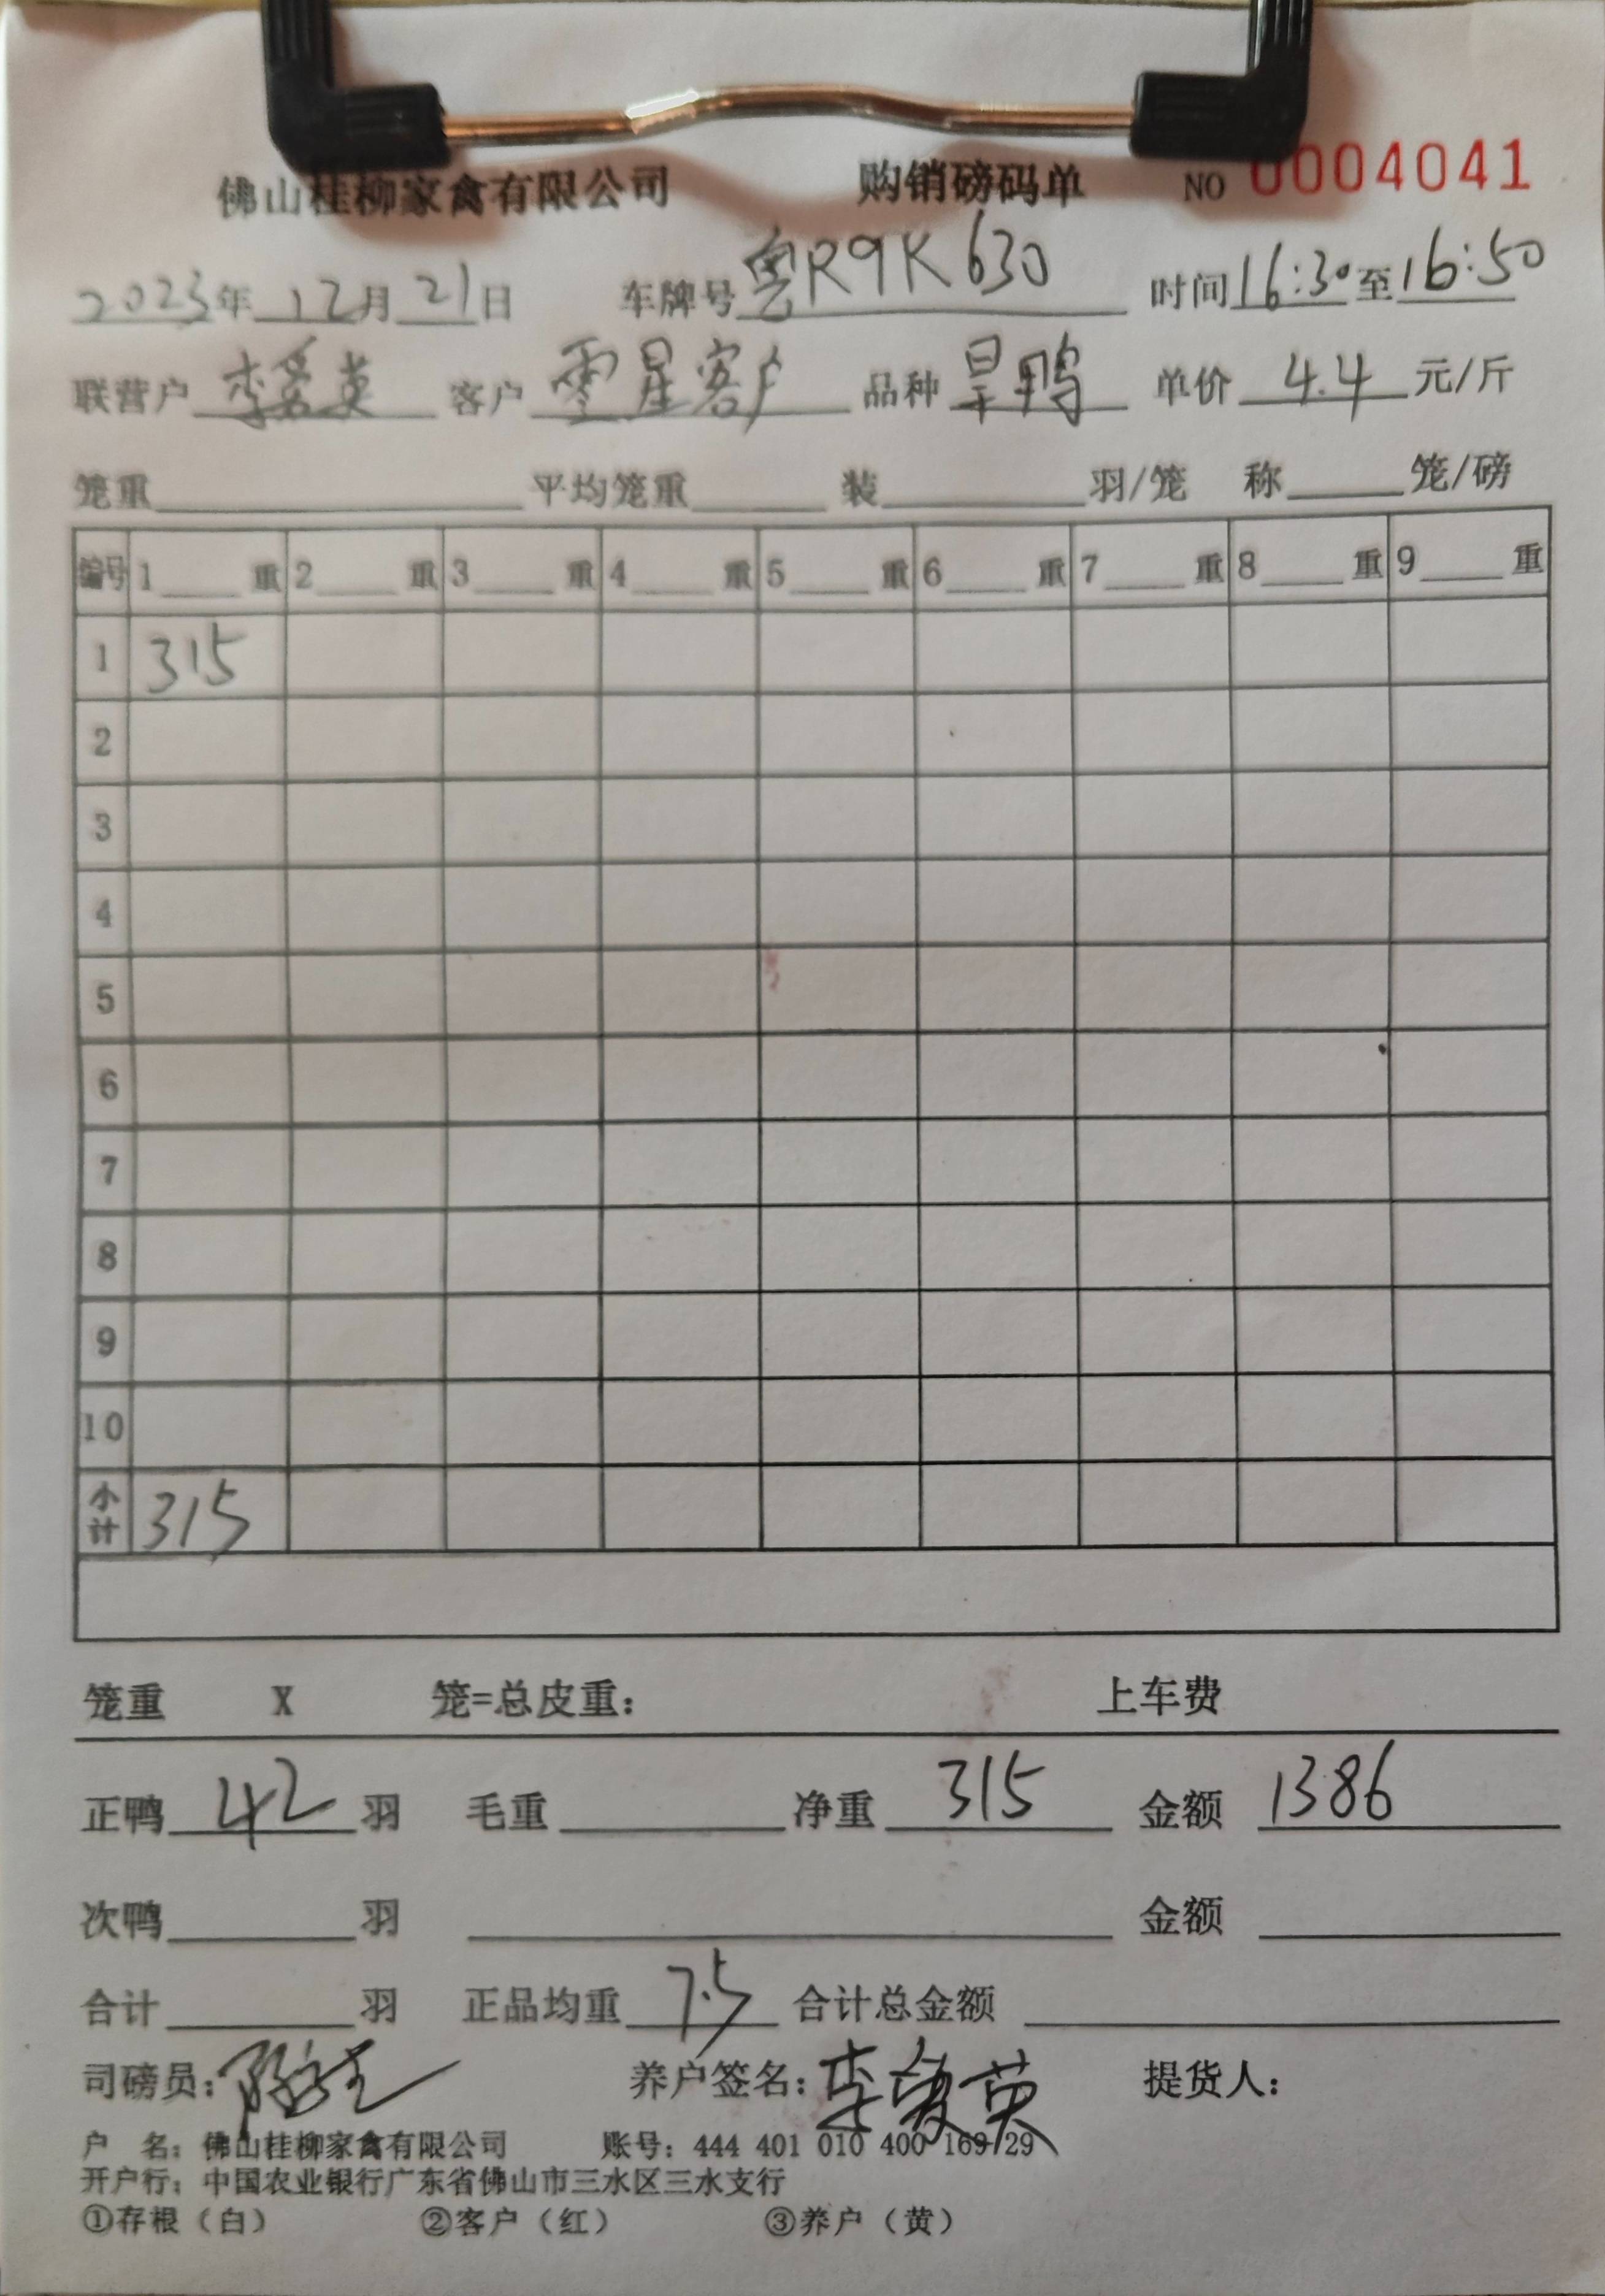 佛山桂柳家禽有限公司 购销磅码单 NO 0004041
2023年12月21日 车牌号 粤R9K630 时间16:30至16:50
联营户 李爱英 客户 零星客户 品种 旱鸭 单价 4.4 元/斤
笼重 平均笼重 装 羽/笼 称 笼/磅
编号 1 重 2 重 3 重 4 重 5 重 6 重 7 重 8 重 9 重
1 315
2
3
4
5
6
7
8
9
10
小计 315
笼重 X 笼=总皮重: 上车费
正鸭 42 羽 毛重 净重 315 金额 1386
次鸭 羽 金额
合计 羽 正品均重 7.5 合计总金额
司磅员: 养户签名: 李爱英 提货人:
户 名: 佛山桂柳家禽有限公司 账号: 444 401 010 400 169 29
开户行: 中国农业银行广东省佛山市三水区三水支行
①存根（白） ②客户（红） ③养户（黄）